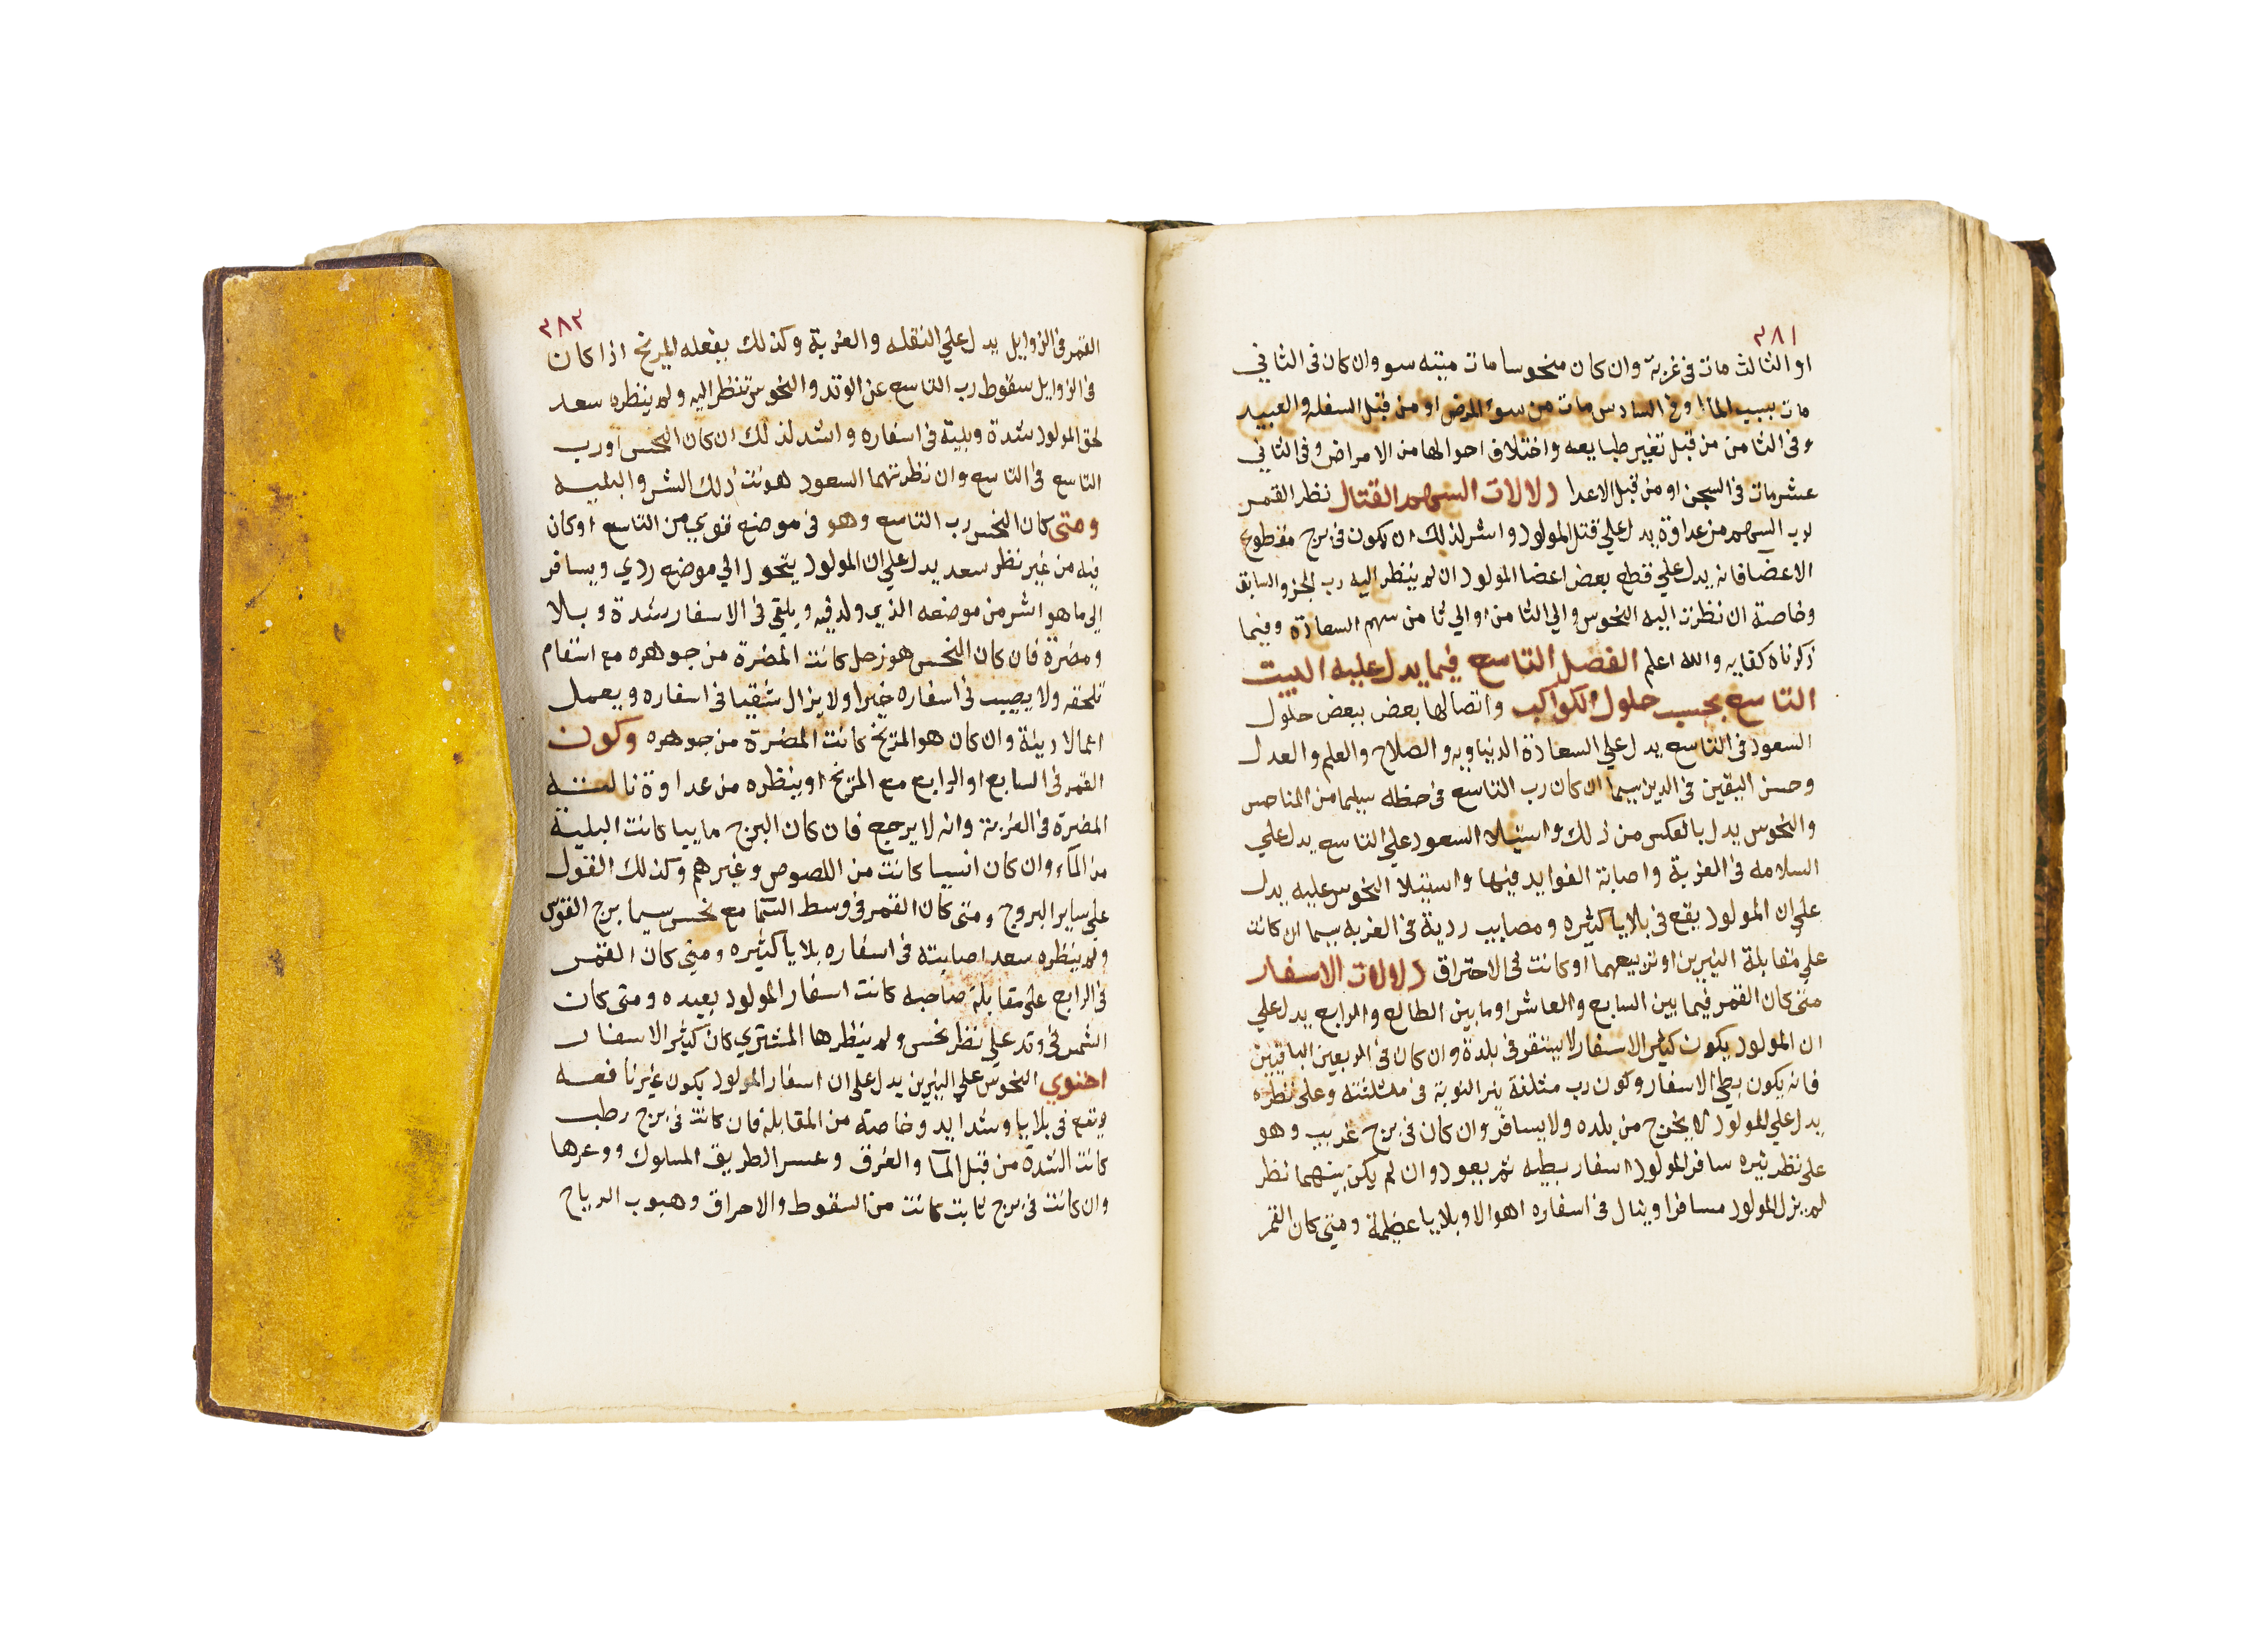 ٣٨١
او الثالث مات فى غربة وان كان منحوسا مات ميتة سو وان كان فى الثاني
مات بسبب الما او فى السادس مات من سوء المرض او من قبل السفله والعبيد
وفى الثامن من قبل تغير طبايعه واختلاف احوالها من الامراض وفى الثاني
عشر مات فى السجن او من قبل الاعدا دلالات السهم القتال نظر القمر
لرب السهم من عداوة يدل علي قتل المولود واشر لذلك ان يكون فى برج مقطوع
الاعضا فانه يدل علي قطع بعض اعضا المولود ان لم ينظر اليه رب الجزو السابق
وخاصة ان نظرت اليه النحوس والي الثامن او الي ثامن سهم السعادة وفيما
ذكرناه كفايه والله اعلم الفصل التاسع فيما يدل عليه البيت
التاسع بحسب حلول الكواكب واتصالها بعض ببعض حلول
السعود فى التاسع يدل علي السعادة الدنياويه والصلاح والعلم والعدل
وحسن اليقين فى الدين سيما ان كان رب التاسع فى حظه سليما من المناحس
والنحوس يدل بالعكس من ذلك واستيلا السعود علي التاسع يدل علي
السلامه فى الغربة واصابة الفوايد فيها واستيلا النحوس عليه يدل
علي ان المولود يقع فى بلايا كثيره ومصايب ردية فى الغربه سيما ان كانت
علي مقابلة النيرين او تربيعهما او كانت فى الاحتراق دلالات الاسفار
متى كان القمر فيما بين السابع والعاشر او ما بين الطالع والرابع يدل علي
ان المولود يكون كثير الاسفار لا يستقر فى بلدة وان كان فى الربعين الباقيين
فانه يكون بطي الاسفار وكون رب مثلثة نير النوبة فى مثلثته وعلى نظره
يدل علي المولود لا يخرج من بلده ولا يسافر وان كان فى برج غريب وهو
على نظر نيره سافر المولود اسفار بطيه ثم يعود وان لم يكن بينهما نظر
لم يزل المولود مسافرا وينال فى اسفاره اهوالا وبلايا عظيمة ومتى كان القمر
٣٨٢
القمر فى الزوايل يدل علي النقله والغربة وكذلك يفعله المريخ اذا كان
فى الزوايل سقوط رب التاسع عن الوتد والنحوس تنظر اليه ولم ينظره سعد
لحق المولود شدة وبلية فى اسفاره واشد لذلك ان كان النحس او رب
التاسع فى التاسع وان نظرتهما السعود هونت ذلك الشر والبليه
ومتى كان النحس رب التاسع وهو فى موضع قوي من التاسع او كان
فيه من غير نظر سعد يدل علي ان المولود يتحول الي موضع ردي ويسافر
الي ما هو اشر من موضعه الذي ولد فيه ويلقى فى الاسفار شدة وبلا
ومضرة فان كان النحس هو زحل كانت المضرة من جوهره مع اسقام
تلحقه ولا يصيب فى اسفاره خيرا ولا يزال شقيا فى اسفاره ويعمل
اعمالا دنيئة وان كان هو المريخ كانت المضرة من جوهره وكون
القمر فى السابع او الرابع مع المريخ او ينظره من عداوة نالته
المضرة فى الغربة وانه لا يرجع فان كان البرج ماييا كانت البلية
من الماء وان كان انسيا كانت من اللصوص وغيرهم وكذلك القول
علي ساير البروج ومتى كان القمر فى وسط السما مع نحس سيما برج القوس
ولم ينظره سعد اصابته فى اسفاره بلايا كثيره ومتى كان القمر
فى الرابع على مقابلة صاحبه كانت اسفار المولود بعيده ومتى كان
الشمس فى وتد علي نظر نحس ولم ينظرها المشتري كان كثير الاسفار
احتوي النحوس علي النيرين يدل علي ان اسفار المولود يكون غير نافعه
ويقع فى بلايا وشدايد وخاصة من المقابلة فان كانت فى برج رطب
كانت الشدة من قبل المآ والغرق وعسر الطريق المسلوك ووعرها
وان كانت فى برج ثابت كانت من السقوط والاحراق وهبوب الرياح